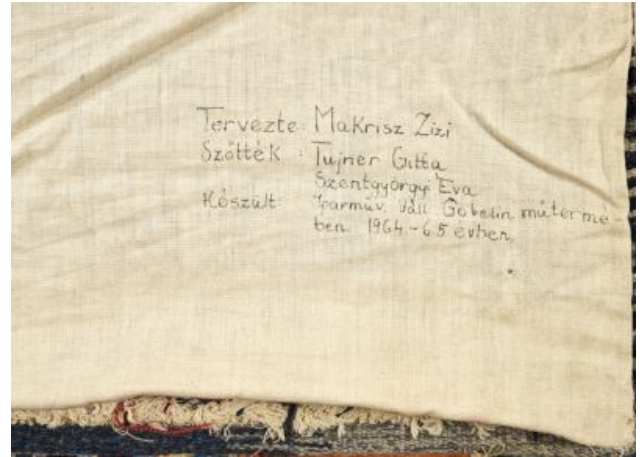 Tervezte: Makrisz Zizi
Szőtték : Tujner Gitta
Szentgyörgyi Éva
Készült: Iparműv. Váll. Gobelin műtermé-
ben. 1964-65 évben.